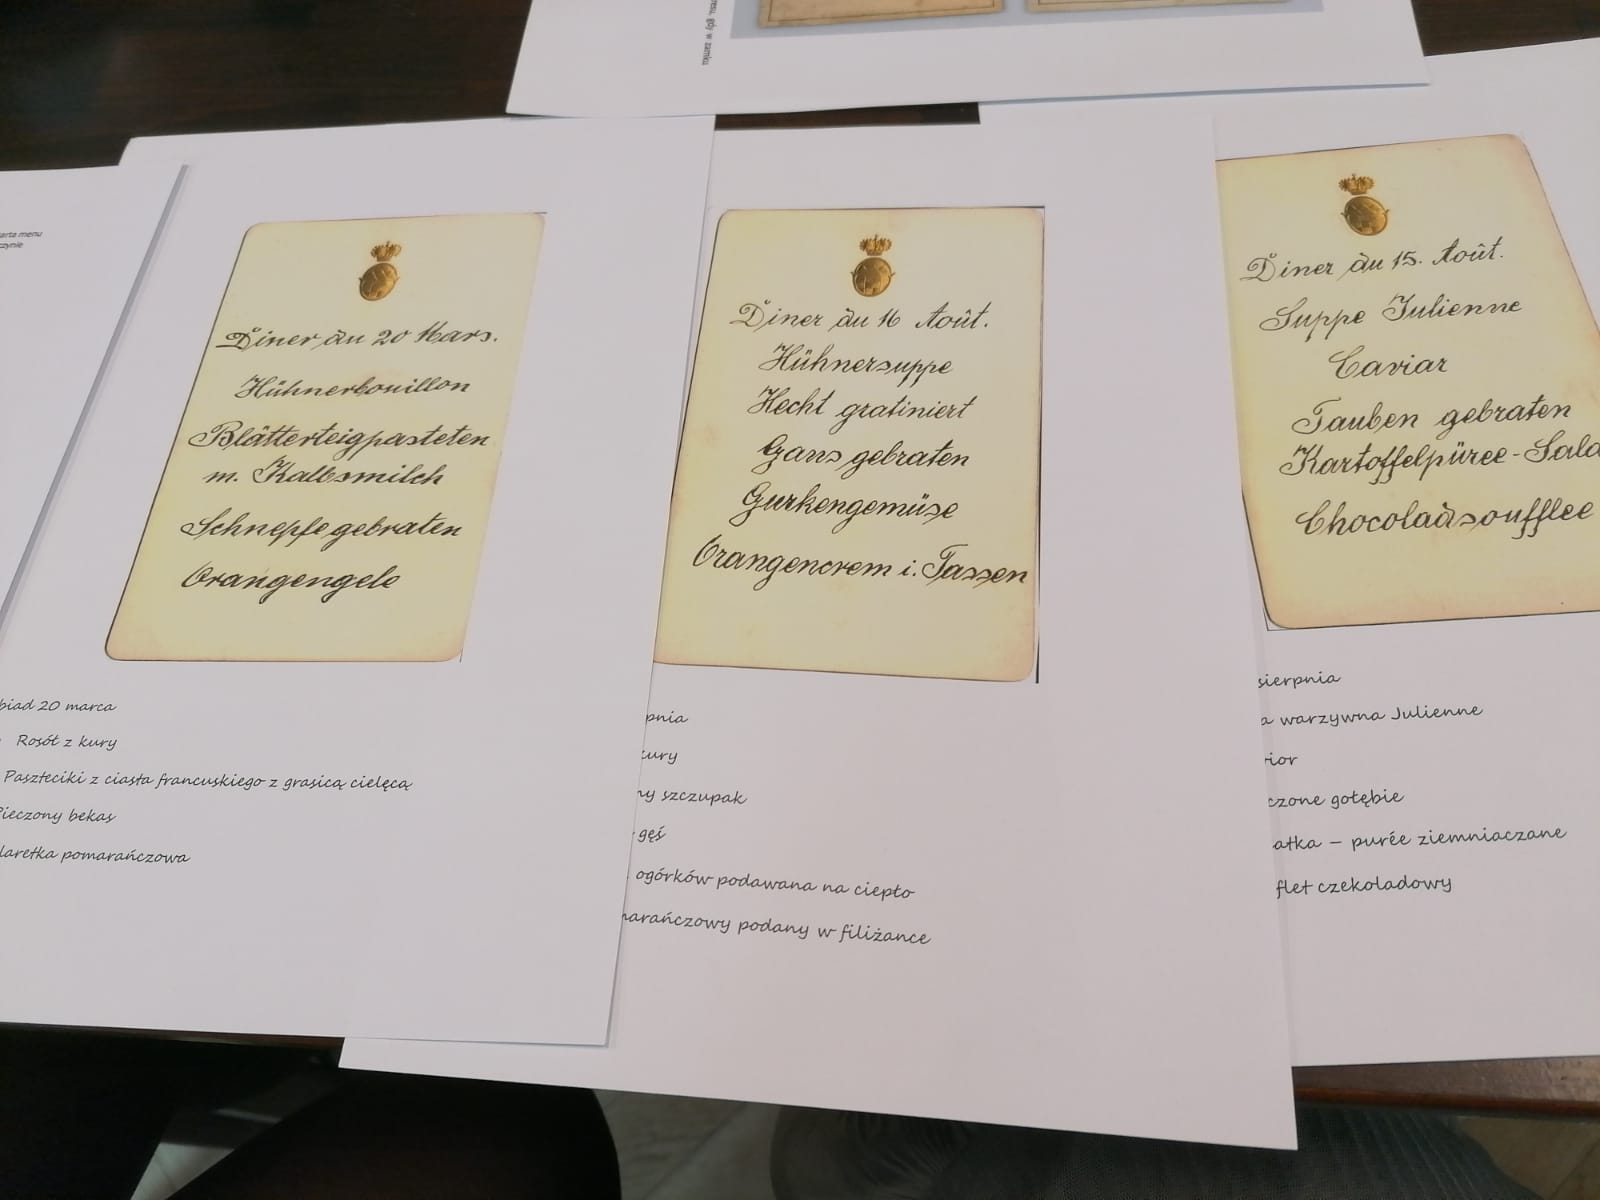 gdy w zamku
arta menu
Diner du 20 Mars.
Hühnerbouillon
Blätterteigpasteten
m. Kalbsmilch
Schnepfe gebraten
Orangengele
biad 20 marca
Rosół z kury
Paszteciki z ciasta francuskiego z grasicą cielęcą
Pieczony bekas
laretka pomarańczowa
Diner du 16 Août.
Hühnersuppe
Hecht gratiniert
Gans gebraten
Gurkengemüse
Orangencrem i. Tassen
pnia
kury
ny szczupak
gęś
ogórków podawana na ciepło
marańczowy podany w filiżance
Diner du 15. Août.
Suppe Julienne
Caviar
Tauben gebraten
Kartoffelpüree-Sala
Chocoladsoufflee
sierpnia
a warzywna Julienne
ior
czone gołębie
atka – purée ziemniaczane
flet czekoladowy